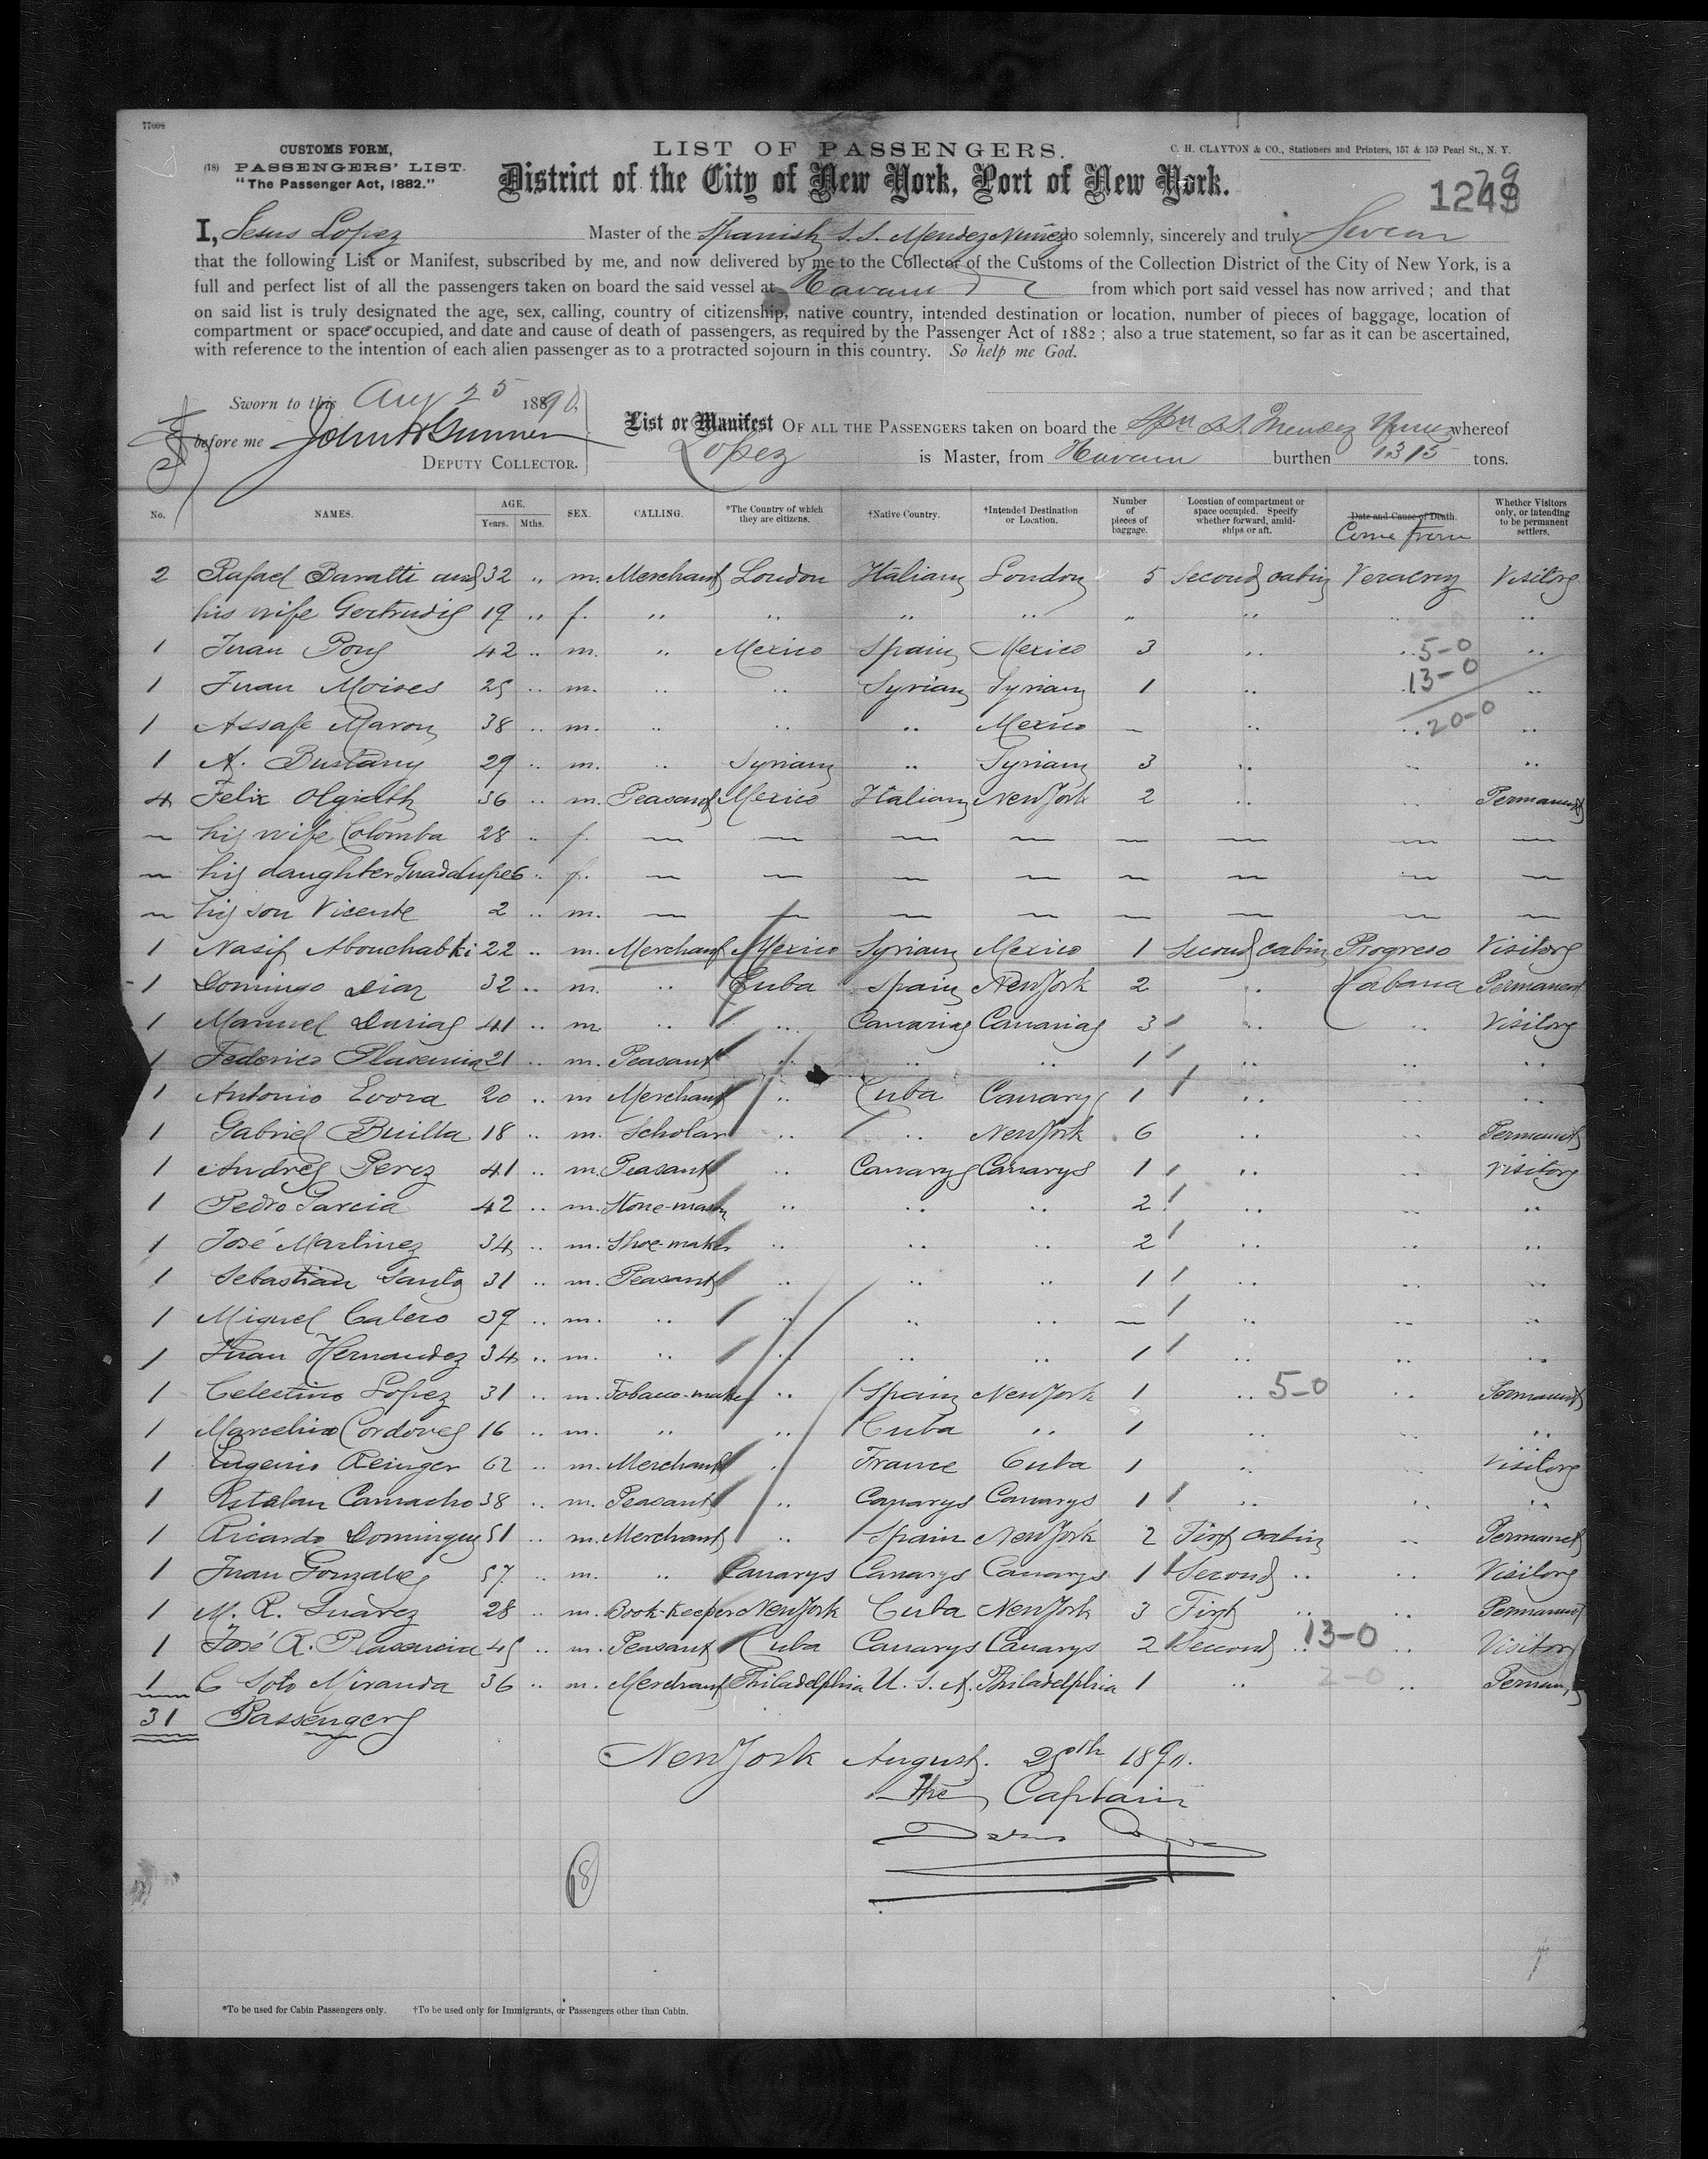 77008
CUSTOMS FORM,
(18) PASSENGERS' LIST.
"The Passenger Act, 1882."
LIST OF PASSENGERS.
District of the City of New York, Port of New York.
C. H. CLAYTON & CO., Stationers and Printers, 157 & 159 Pearl St., N. Y.
I, Jesus Lopez Master of the Spanish S.S. Mendez Nuñez do solemnly, sincerely and truly Swear
that the following List or Manifest, subscribed by me, and now delivered by me to the Collector of the Customs of the Collection District of the City of New York, is a
full and perfect list of all the passengers taken on board the said vessel at Havana from which port said vessel has now arrived; and that
on said list is truly designated the age, sex, calling, country of citizenship, native country, intended destination or location, number of pieces of baggage, location of
compartment or space occupied, and date and cause of death of passengers, as required by the Passenger Act of 1882; also a true statement, so far as it can be ascertained,
with reference to the intention of each alien passenger as to a protracted sojourn in this country. So help me God.
Sworn to this Aug 25 1890,
before me John H Gunner
DEPUTY COLLECTOR.
List or Manifest OF ALL THE PASSENGERS taken on board the Spn SS Mendez Nunez whereof
Lopez is Master, from Havana burthen 1315 tons.
No. NAMES. AGE. Years. Mths. SEX. CALLING. *The Country of which they are citizens. †Native Country. †Intended Destination or Location. Number of pieces of baggage. Location of compartment or space occupied. Specify whether forward, amidships or aft. Date and Cause of Death. Come from Whether Visitors only, or intending to be permanent settlers.
2 Rafael Baratti and 32 " m. Merchant London Italian London 5 Second cabin Veracruz Visitors
his wife Gertrudis 19 " f. " " " " " " " "
1 Juan Pons 42 " m. " Mexico Spain Mexico 3 " " 5-0 "
1 Juan Moises 25 " m. " " Syrian Syrian 1 " " 13-0 "
1 Assafe Maron 38 " m. " " " Mexico — " " 20-0 "
1 A. Bustany 29 " m. " Syrian " Syrian 3 " " "
4 Felix Olgiatti 36 " m. Peasant Mexico Italian New York 2 " " Permanent
— his wife Colomba 28 " f. — — — — — — — —
— his daughter Guadalupe 6 " f. — — — — — — — —
— his son Vicente 2 " m. — — — — — — — —
1 Nasif Abouchabki 22 " m. Merchant Mexico Syrian Mexico 1 Second cabin Progreso Visitors
1 Domingo Diaz 32 " m. " Cuba Spain New York 2 " Habana Permanent
1 Manuel Darias 41 " m. " " Canarias Canarias 3 " " Visitors
1 Federico Plasencia 21 " m. Peasant " " " 1 " " "
1 Antonio Evora 20 " m Merchant " Cuba Canary 1 " " "
1 Gabriel Builla 18 " m. Scholar " " New York 6 " " Permanent
1 Andres Perez 41 " m. Peasant " Canarys Canarys 1 " " Visitors
1 Pedro Garcia 42 " m. Stone-mason " " " 2 " " "
1 José Martinez 34 " m. Shoe-maker " " " 2 " " "
1 Sebastian Santos 31 " m. Peasant " " " 1 " " "
1 Miguel Calero 39 " m. " " " " — " " "
1 Juan Hernandez 34 " m. " " " " 1 " " "
1 Celestino Lopez 31 " m. Tobacco-maker " Spain New York 1 " 5-0 " Permanent
1 Marcelino Cordoves 16 " m. " " Cuba " 1 " " "
1 Eugenio Reinger 62 " m. Merchant " France Cuba 1 " " Visitors
1 Estaban Camacho 38 " m. Peasant " Canarys Canarys 1 " " "
1 Ricardo Dominguez 51 " m. Merchant " Spain New York 2 First cabin " Permanent
1 Juan Gonzales 57 " m. " Canarys Canarys Canarys 1 Second " " Visitors
1 M. R. Suarez 28 " m. Book-keeper New York Cuba New York 3 First " " Permanent
1 José R. Plasencia 45 " m. Peasant Cuba Canarys Canarys 2 Second " 13-0 " Visitors
1 C Soto Miranda 36 " m. Merchant Philadelphia U. S. A. Philadelphia 1 " 2-0 " Perman
31 Passengers
New York August. 25th 1890.
The Captain
18
*To be used for Cabin Passengers only. †To be used only for Immigrants, or Passengers other than Cabin.